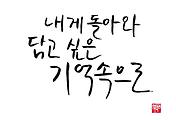 내게 돌아와
닮고 싶은
기억속으로